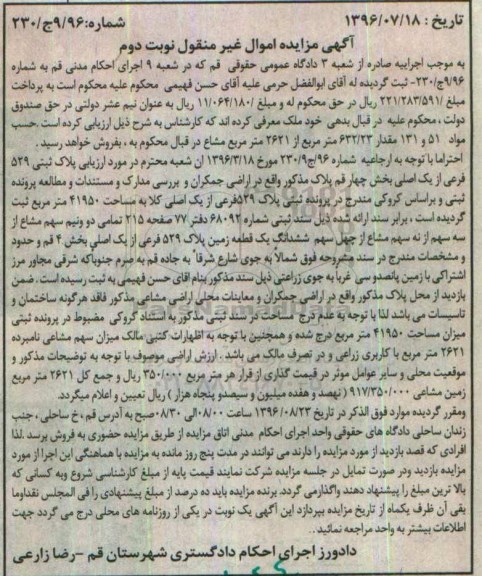 تاریخ : ۱۳۹۶/۰۷/۱۸ شماره:۹/۹۶ج/۲۳۰
آگهی مزایده اموال غیر منقول نوبت دوم
به موجب اجراییه صادره از شعبه ۳ دادگاه عمومی حقوقی قم که در شعبه ۹ اجرای احکام مدنی قم به شماره
۹/۹۶ج/۲۳۰- ثبت گردیده له آقای ابوالفضل حرمی علیه آقای حسن فهیمی محکوم علیه محکوم است به پرداخت
مبلغ ۲۲۱/۲۸۳/۵۹۱/ ریال در حق محکوم له و مبلغ ۱۱/۰۶۴/۱۸۰/ ریال به عنوان نیم عشر دولتی در حق صندوق
دولت ، محکوم علیه در قبال بدهی خود ملک معرفی کرده اند که کارشناس به شرح ذیل ارزیابی کرده است .حسب
مواد ۵۱ و ۱۳۱ مقدار ۶۳۲/۲۳ متر مربع از ۲۶۲۱ متر مربع مشاع در قبال محکوم به ، بفروش خواهد رسید .
احتراما با توجه به ارجاعیه شماره ۹۶/ج۲۳۰/۹ مورخ ۱۳۹۶/۳/۱۸ ان شعبه محترم در مورد ارزیابی پلاک ثبتی ۵۲۹
فرعی از یک اصلی بخش چهار قم پلاک مذکور واقع در اراضی جمکران و بررسی مدارک و مستندات و مطالعه پرونده
ثبتی و براساس کروکی مندرج در پرونده ثبتی پلاک ۵۲۹فرعی از یک اصلی کلا به مساحت ۴۱۹۵۰ متر مربع ثبت
گردیده است ، برابر سند ارائه شده ذیل سند ثبتی شماره ۶۸۰۹۲ دفتر ۷۷ صفحه ۲۱۵ تمامی دو ونیم سهم مشاع از
سه سهم از نه سهم مشاع از چهل سهم ششدانگ یک قطعه زمین پلاک ۵۲۹ فرعی از یک اصلی بخش ۴ قم و حدود
و مشخصات مندرج در سند مشروحه فوق شمالاً به جوی شارع شرقاً به جاده قم به صرم جنوباً که شرقی مجاور مرز
اشتراکی با زمین پانصدو سی غرباً به جوی زراعتی ذیل سند مذکور بنام اقای حسن فهیمی به ثبت رسیده است . ضمن
بازدید از محل پلاک مذکور واقع در اراضی جمکران و معاینات محلی اراضی مشاعی مذکور فاقد هرگونه ساختمان و
تاسیسات می باشد لذا با توجه به عدم درج مساحت در سند ثبتی مذکور به استناد کروکی مضبوط در پرونده ثبتی
میزان مساحت ۴۱۹۵۰ متر مربع درج شده و همچنین با توجه به اظهارات کتبی مالک میزان سهم مشاعی نامبرده
۲۶۲۱ متر مربع با کاربری زراعی و در تصرف مالک می باشد . ارزش اراضی موصوف با توجه به توضیحات مذکور و
موقعیت محلی و سایر عوامل موثر در قیمت گذاری از قرار هر متر مربع ۳۵۰/۰۰۰ ریال و جمع کل ۲۶۲۱ متر مربع
زمین مشاعی ۹۱۷/۳۵۰/۰۰۰ ( نهصد و هفده میلیون و سیصدو پنجاه هزار ) ریال تعیین و اعلام میگردد.
ومقرر گردیده موارد فوق الذکر در تاریخ ۱۳۹۶/۰۸/۲۳ ساعت ۰۸/۰۰الی ۰۸/۳۰صبح به آدرس قم ،خ ساحلی ، جنب
زندان ساحلی دادگاه های حقوقی واحد اجرای احکام مدنی اتاق مزایده از طریق مزایده حضوری به فروش برسد .لذا
افرادی که قصد بازدید از مورد مزایده را دارند می توانند در مدت پنج روز مانده به مزایده با هماهنگی این اجرا از مورد
مزایده بازدید ودر صورت تمایل در جلسه مزایده شرکت نمایند قیمت پایه از مبلغ کارشناسی شروع وبه کسانی که
بالا ترین مبلغ را پیشنهاد دهند واگذارمی گردد. برنده مزایده باید ده درصد از مبلغ پیشنهادی را فی المجلس نقداوما
بقی آن ظرف یکماه از تاریخ مزایده بپردازد این آگهی یک نوبت در یکی از روزنامه های محلی درج می گردد جهت
اطلاعات بیشتر به واحد مراجعه نمائید..
دادورز اجرای احکام دادگستری شهرستان قم -رضا زارعی